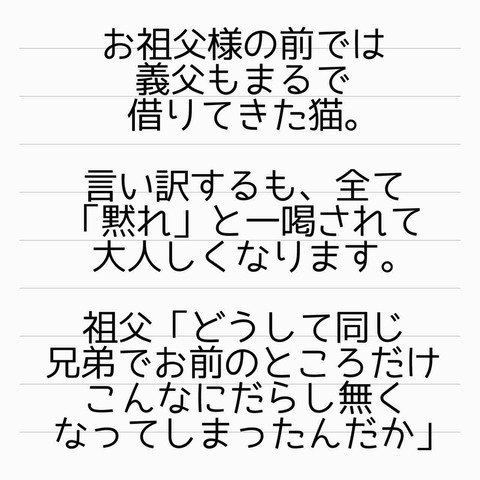 お祖父様の前では
義父もまるで
借りてきた猫。
言い訳するも、全て
「黙れ」と一喝されて
大人しくなります。
祖父「どうして同じ
兄弟でお前のところだけ
こんなにだらし無く
なってしまったんだか」